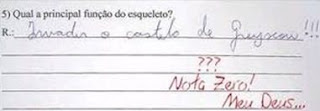 5) Qual a principal função do esqueleto?
R.: Invadir o castelo de Greyscow!!!
???
Nota Zero!
Meu Deus...